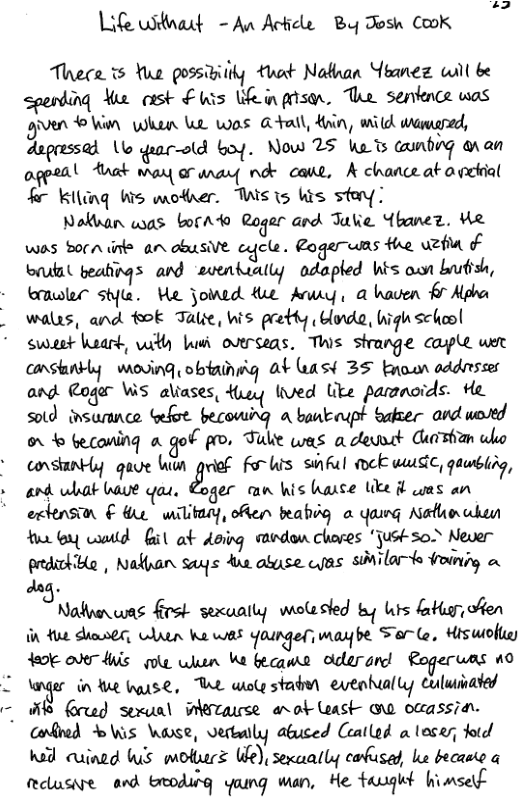 23
Life Without - An Article By Josh Cook
There is the possibility that Nathan Ybanez will be
spending the rest of his life in prison. The sentence was
given to him when he was a tall, thin, mild mannered,
depressed 16 year-old boy. Now 25 he is counting on an
appeal that may or may not come. A chance at a retrial
for killing his mother. This is his story:
Nathan was born to Roger and Julie Ybanez. He
was born into an abusive cycle. Roger was the victim of
brutal beatings and eventually adapted his own brutish,
brawler style. He joined the Army, a haven for Alpha
males, and took Julie, his pretty, blonde, high school
sweet heart, with him overseas. This strange couple were
constantly moving, obtaining at least 35 known addresses
and Roger his aliases, they lived like paranoids. He
sold insurance before becoming a bankrupt baker and moved
on to becoming a golf pro. Julie was a devout Christian who
constantly gave him grief for his sinful rock music, gambling,
and what have you. Roger ran his house like it was an
extension of the military, often beating a young Nathan when
the boy would fail at doing random chores 'just so.' Never
predictible, Nathan says the abuse was similar to training a
dog.
Nathan was first sexually molested by his father, often
in the shower, when he was younger, maybe 5 or 6. His mother
took over this role when he became older and Roger was no
longer in the house. The molestation eventually culuminated
into forced sexual intercourse on at least one occassion.
Confined to his house, verbally abused (called a loser, told
he'd ruined his mother's life), sexually confused, he became a
reclusive and brooding young man. He taught himself